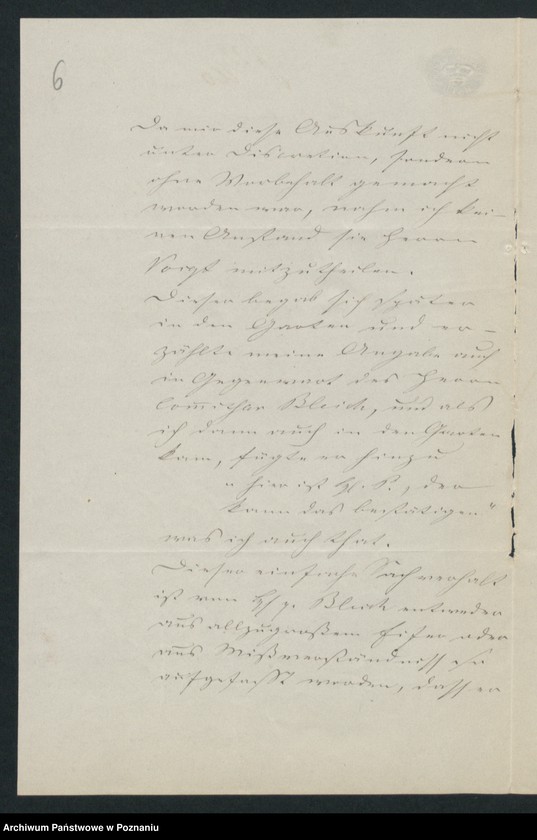 6
Da mir diese Auskunft nicht
unter Discretion, sondern
ohne Vorbehalt gemacht
worden war, nahm ich kei-
nen Anstand sie Herrn
Voigt mitzutheilen.
Dieser begab sich später
in den Garten und er-
zählte meine Angabe auch
in Gegenwart des Herrn
Bleick, und als
ich dann auch in den Garten
kam, fügte er hinzu
"hier ist H. P., der
kann das bestätigen"
was ich auch that.
Dieser einfache Sachverhalt
ist von H. Bleick entweder
aus allzugroßem Eifer oder
aus Mißverständniss so
aufgefasst worden, dass er
Archiwum Państwowe w Poznaniu